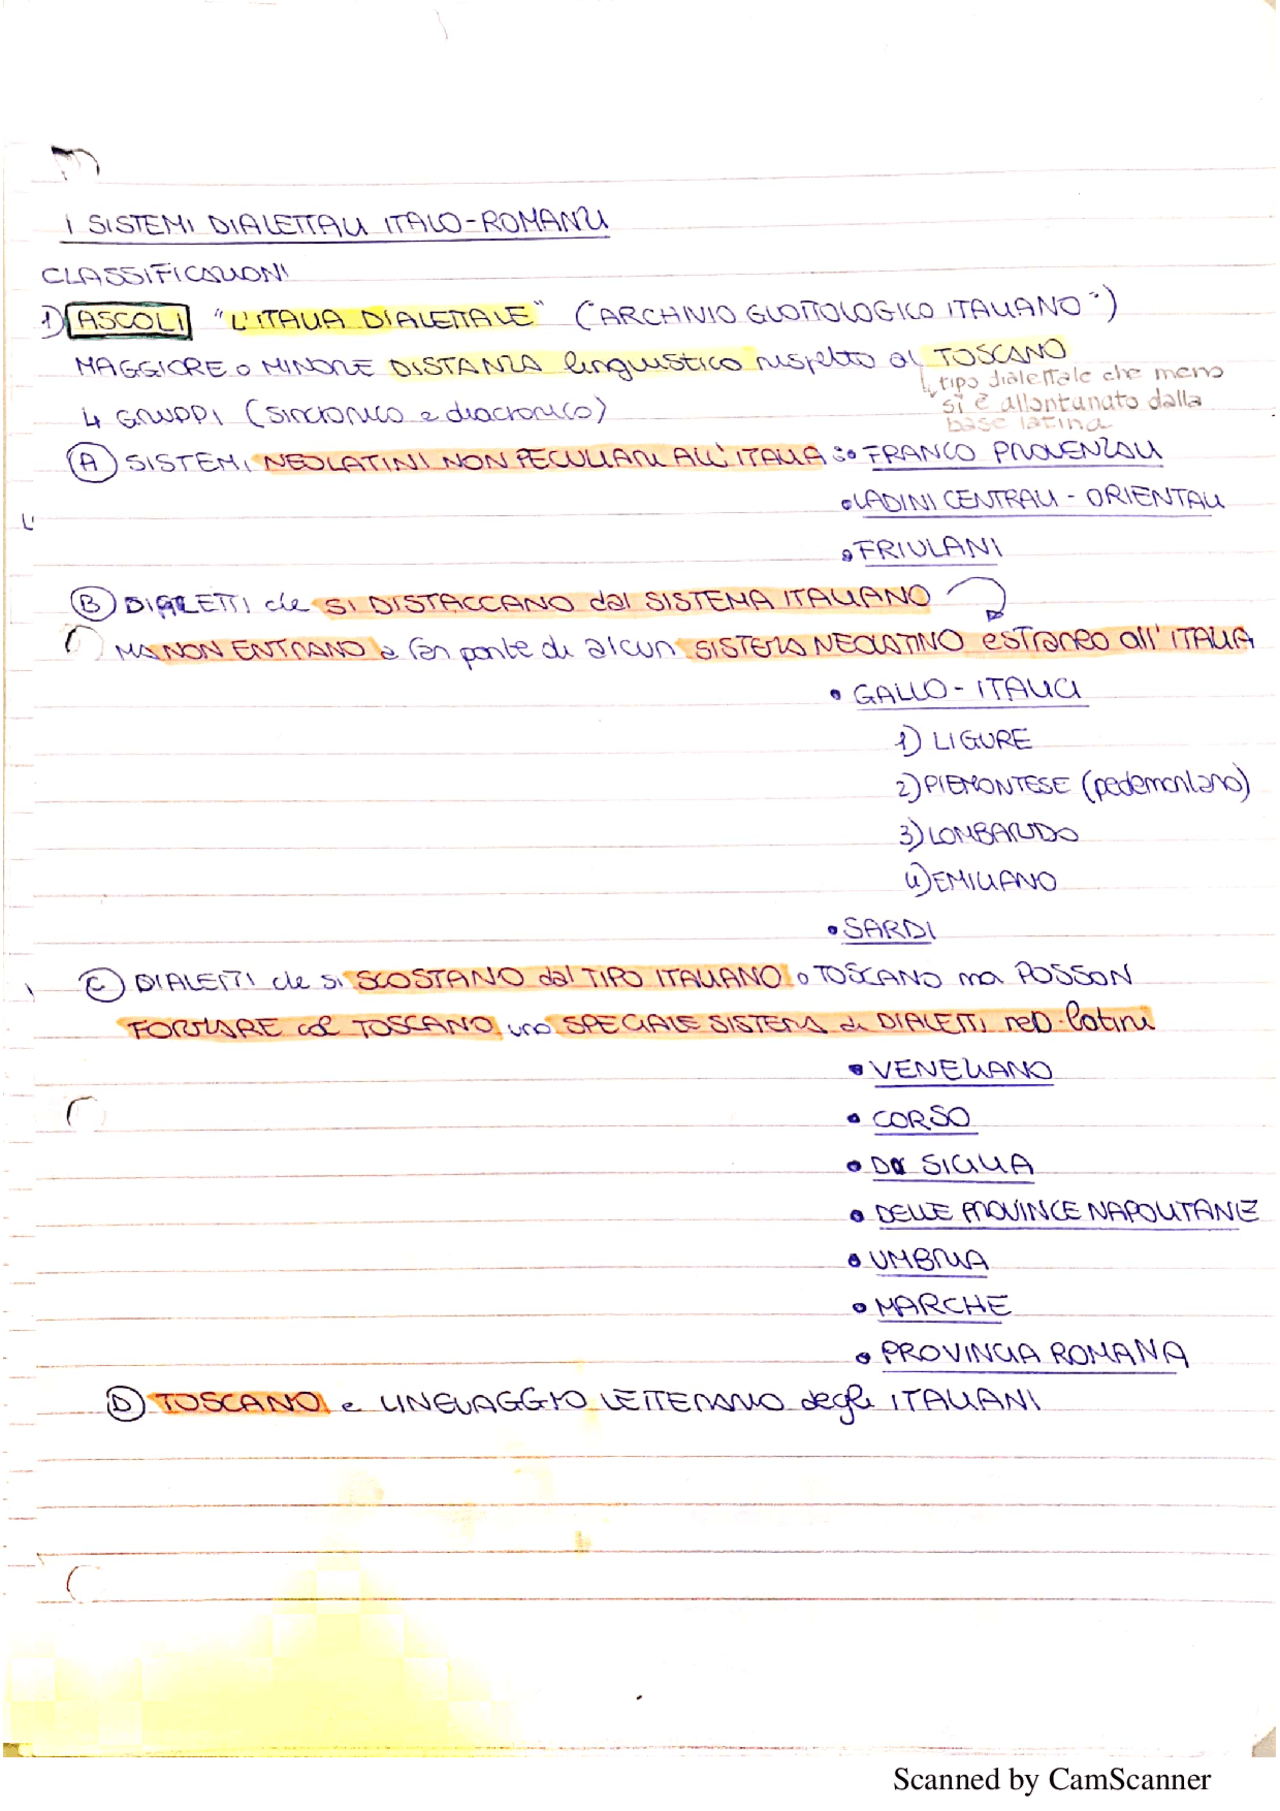 I SISTEMI DIALETTALI ITALO-ROMANZI
CLASSIFICAZIONI
1) ASCOLI "L'ITALIA DIALETTALE" ("ARCHIVIO GLOTTOLOGICO ITALIANO")
MAGGIORE o MINORE DISTANZA linguistica rispetto al TOSCANO
↳ tipo dialettale che meno
si è allontanato dalla
base latina
4 GRUPPI (sincronico e diacronico)
A) SISTEMI NEOLATINI NON PECULIARI ALL'ITALIA: • FRANCO PROVENZALI
• LADINI CENTRALI - ORIENTALI
• FRIULANI
B) DIALETTI che SI DISTACCANO dal SISTEMA ITALIANO
MA NON ENTRANO a far parte di alcun SISTEMA NEOLATINO estraneo all'ITALIA
• GALLO-ITALICI
1) LIGURE
2) PIEMONTESE (pedemontano)
3) LOMBARDO
4) EMILIANO
• SARDI
C) DIALETTI che si SCOSTANO dal TIPO ITALIANO o TOSCANO ma POSSON
FORMARE col TOSCANO uno SPECIALE SISTEMA di DIALETTI neo-latini
• VENEZIANO
• CORSO
• DI SICILIA
• DELLE PROVINCE NAPOLITANE
• UMBRIA
• MARCHE
• PROVINCIA ROMANA
D) TOSCANO e LINGUAGGIO LETTERARIO degli ITALIANI
Scanned by CamScanner